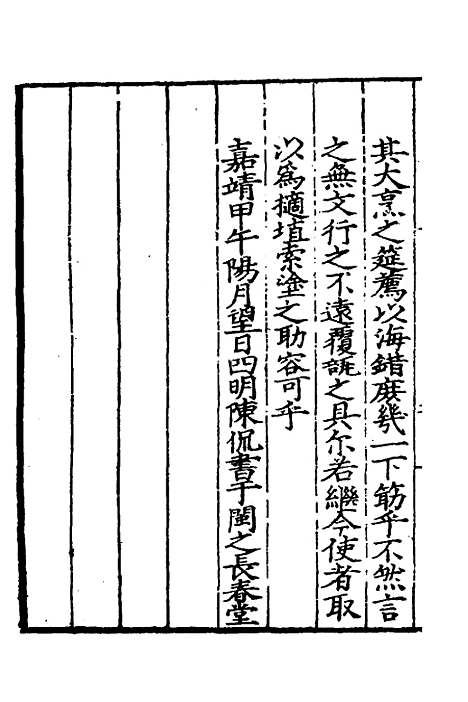 其大烹之筵薦以海錯庶幾一下筯乎不然言
之無文行之不遠覆瓿之具尔若繼今使者取
以為擿埴索塗之助容可乎
嘉靖甲午陽月望日四明陳侃書于閩之長春堂